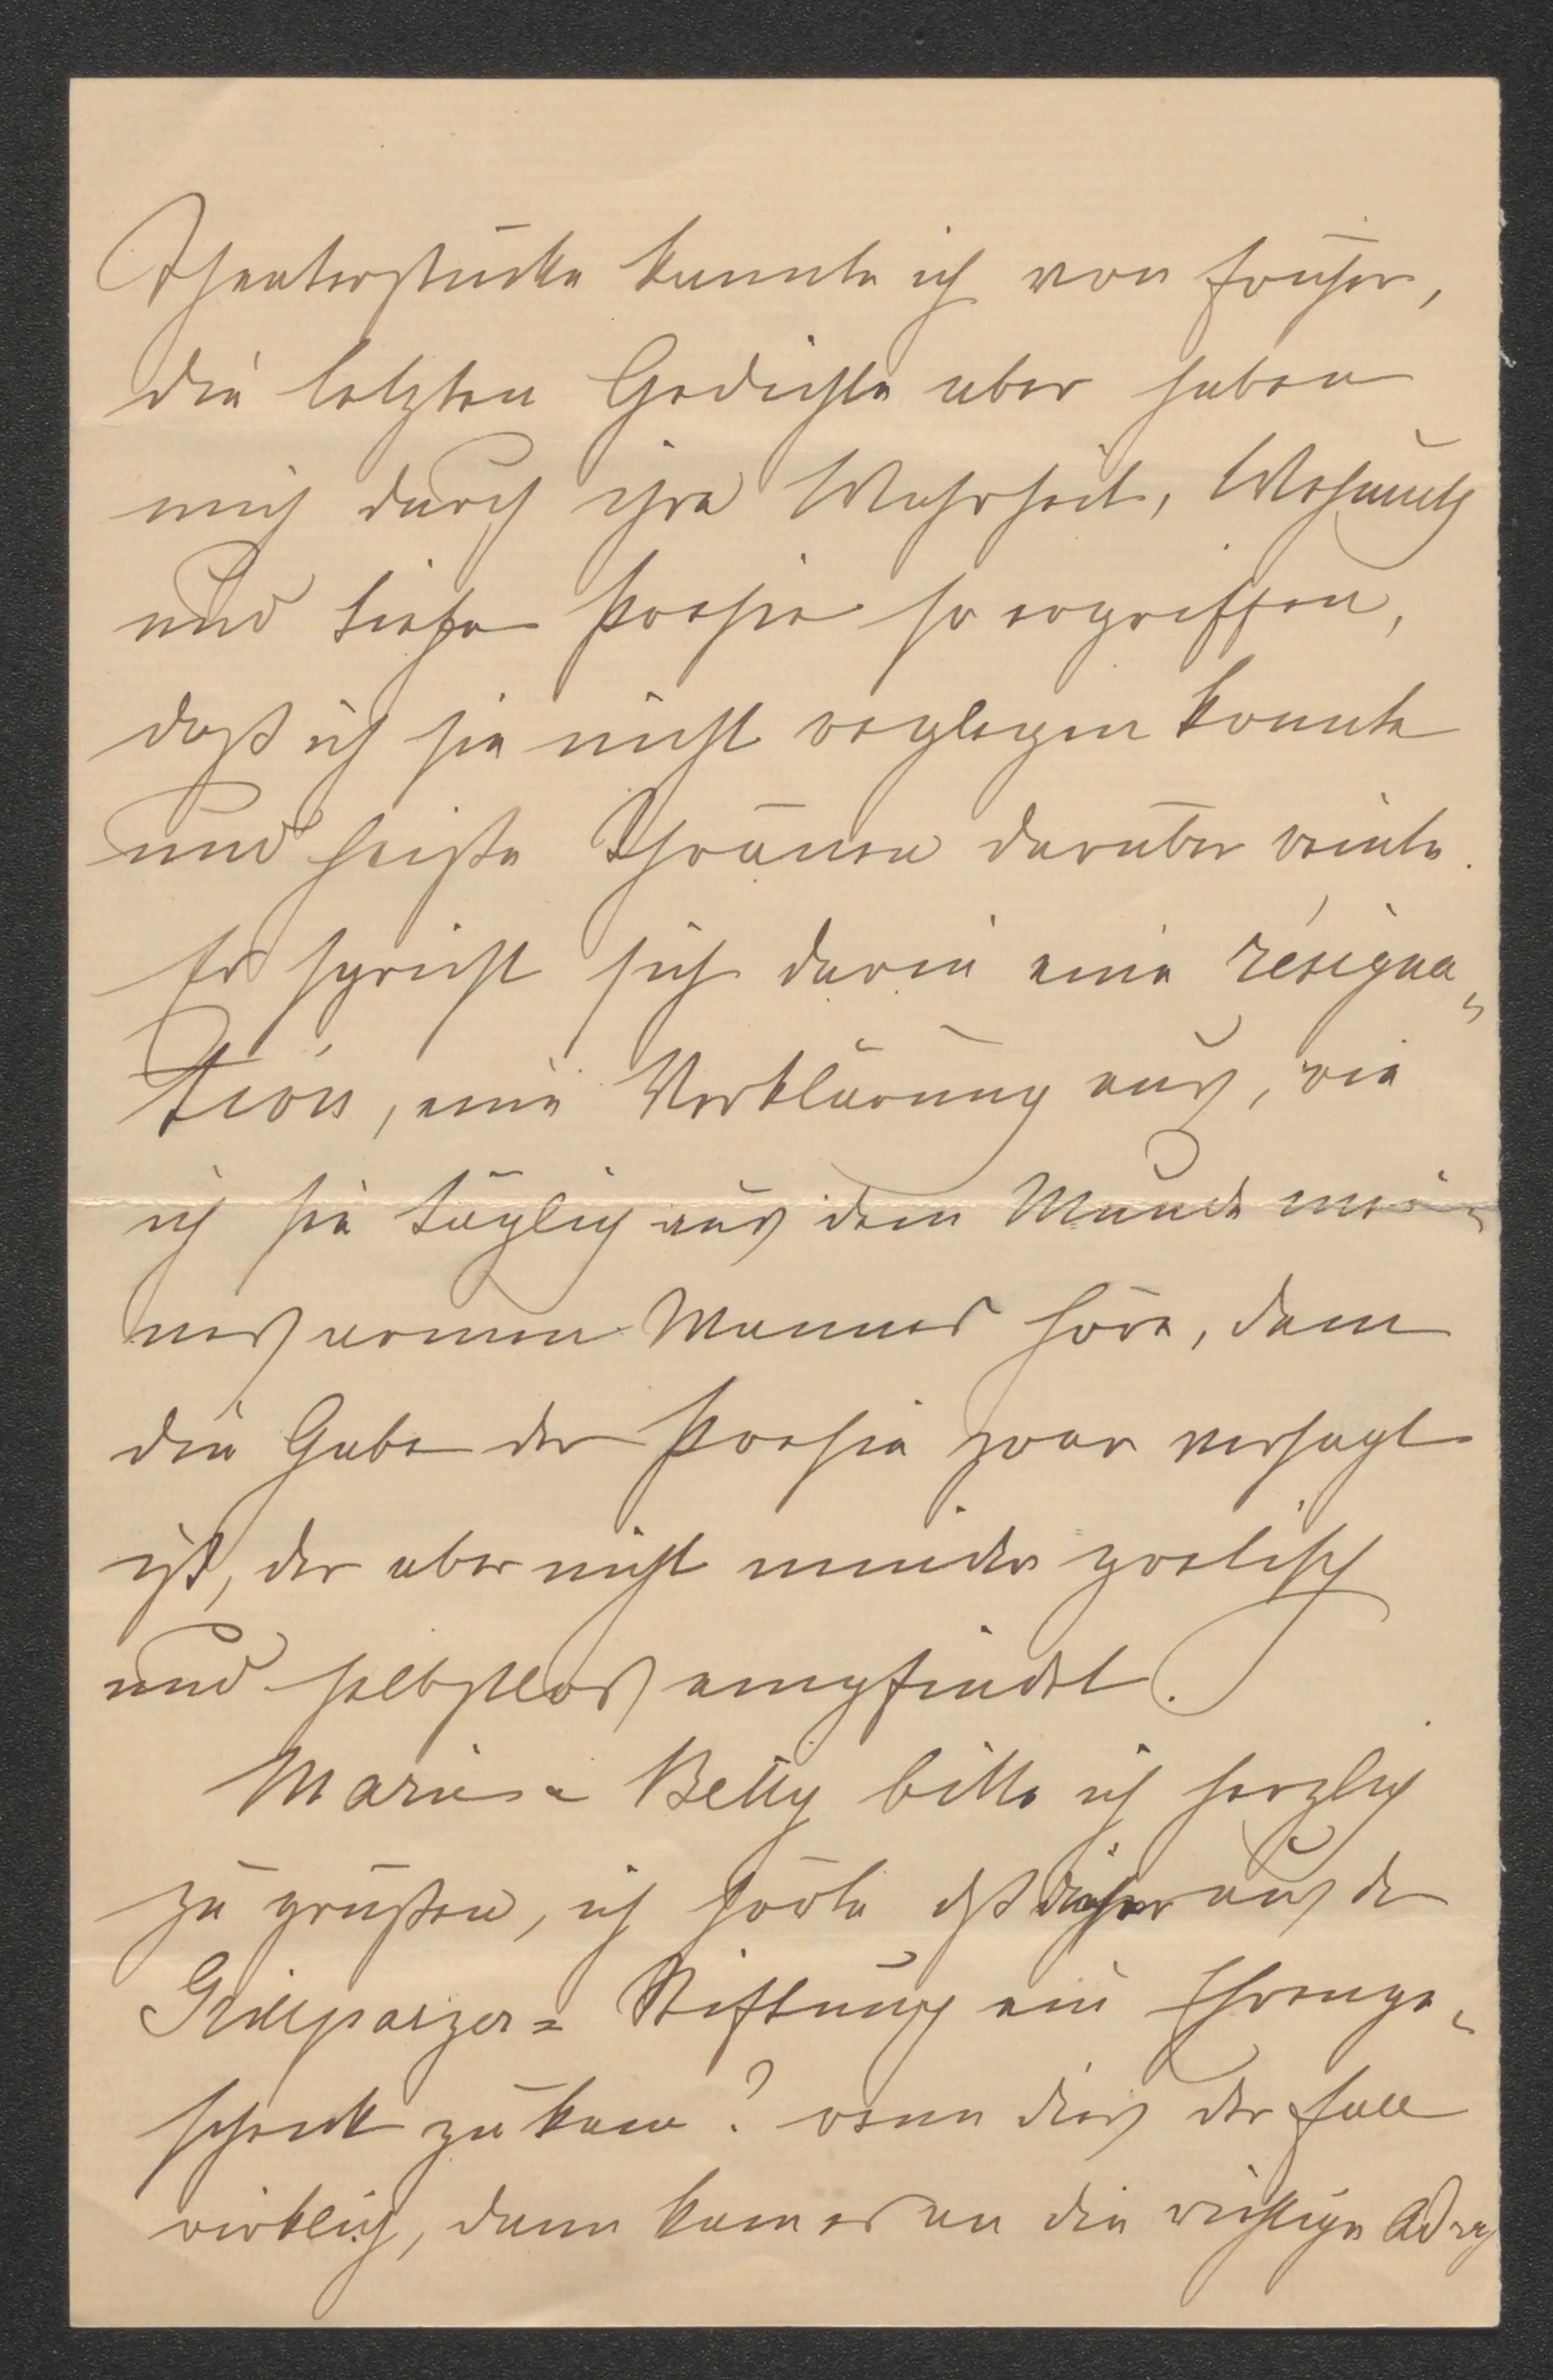 Theaterstücke kannte ich von früher,
die letzten Gedichte aber haben
mich durch ihre Wahrheit, Wehmuth
und tiefe Poesie so ergriffen,
daß ich sie nicht weglegen konnte
und heiße Thränen darüber weinte.
Es spricht sich darin eine résigna„
tion, eine Verklärung aus, wie
ich sie täglich aus dem Munde mei„
nes armen Mannes höre, dem
die Gabe der Poesie zwar versagt
ist, der aber nicht minder poetisch
und selbstlos empfindet.
Marie u Betty bitte ich herzlich
zu grüßen, ich hörte daß aus der
Grillparzer= Stiftung ein Ehrenge„
schenk zukam? wenn dies der Fall
wirklich, dann kam es an die richtige Adreß